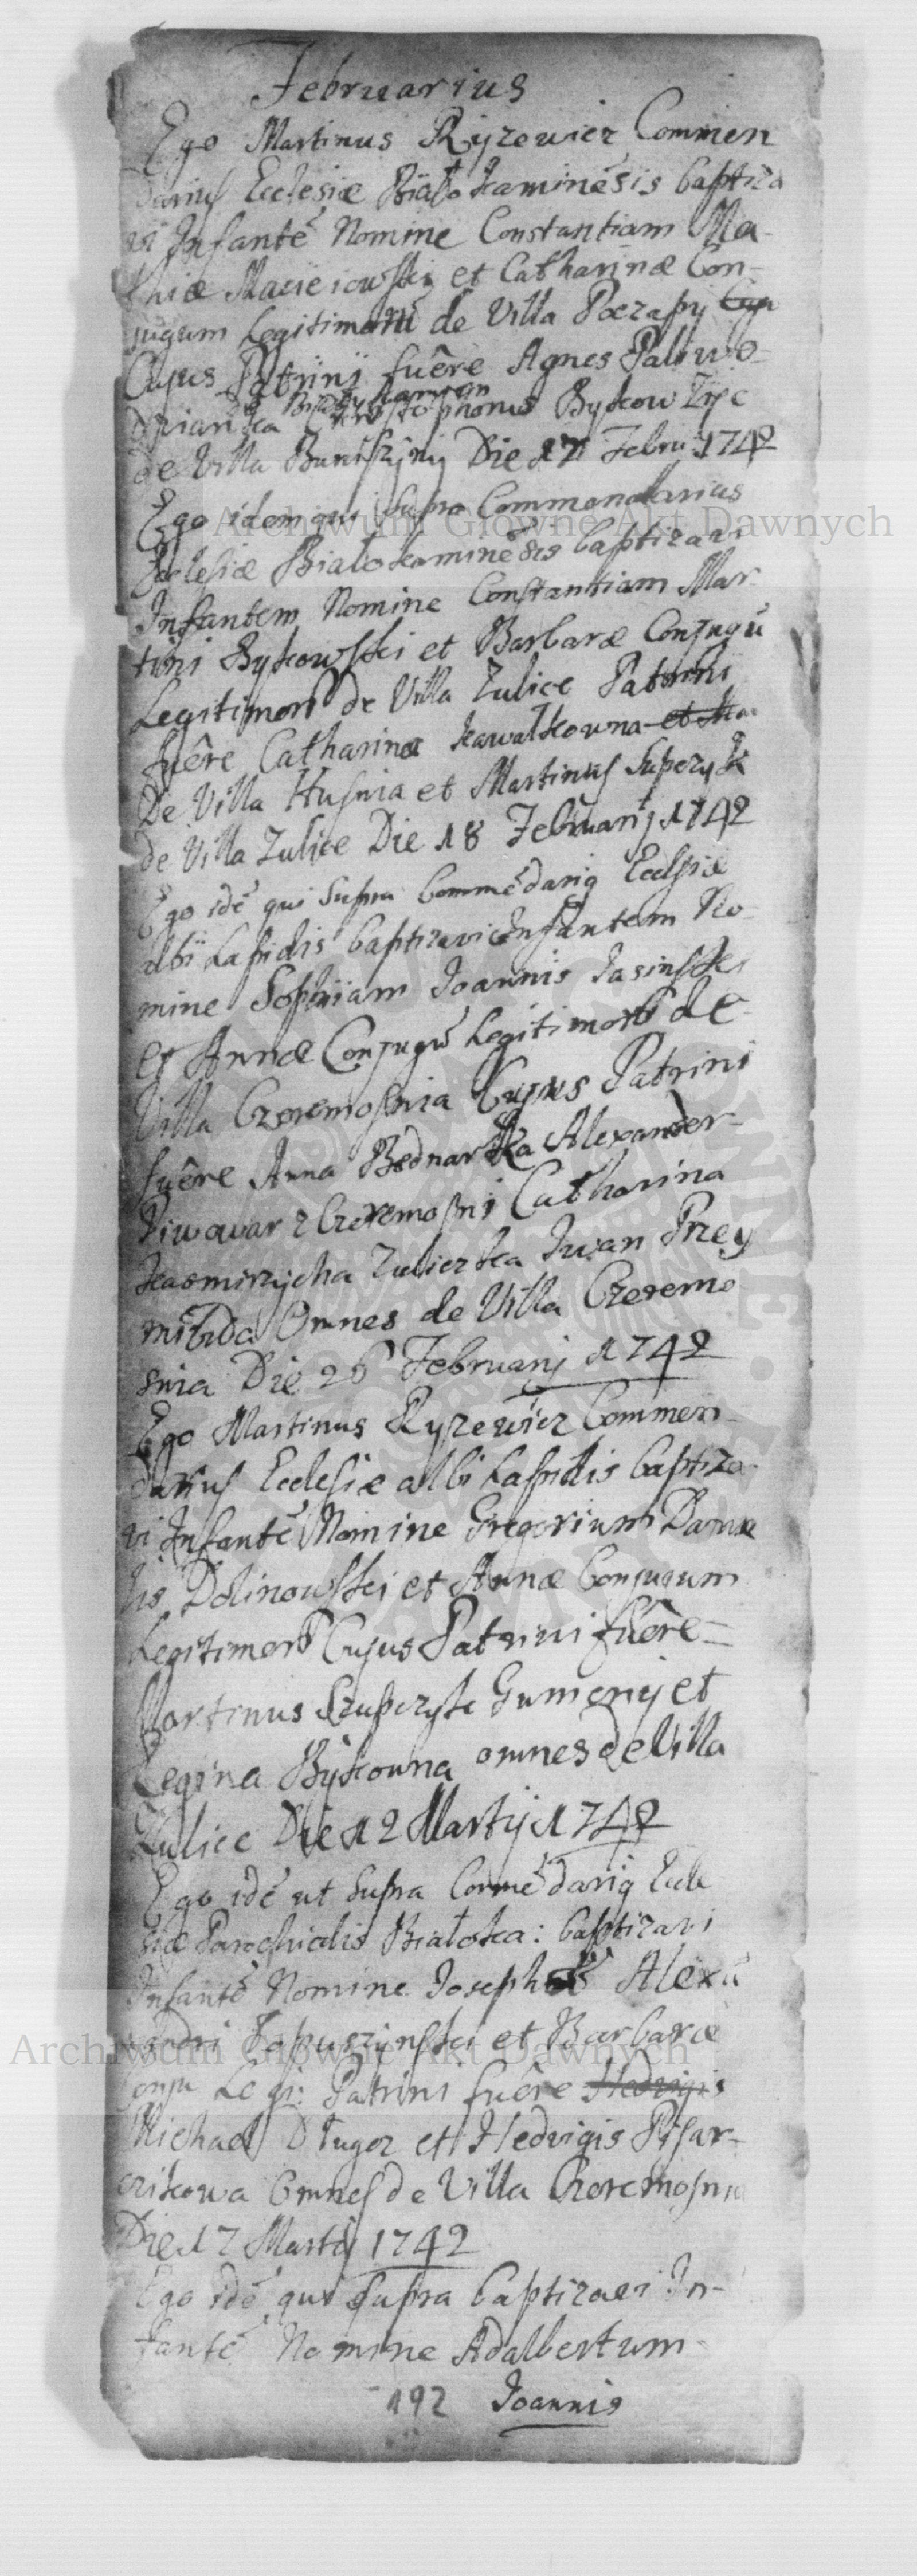 Februarius
Ego Martinus Ryzewicz Commen
darius Ecclesiæ Biało Kaminēsis baptiza
vi Infantē Nomine Constantiam Ma-
thiæ Macieiowski et Catharinæ Con-
jugum Legitimorū de Villa Poczapÿ
Cujus Patrini fuêre Agnes Paliwo-
dzianka
de Villa Die 17 Febru: 1742
Ego idem qui supra Commendarius
Ecclesiæ Białokaminēsis baptizavi
Infantem Nomine Constantiam Mar-
tini Bykowski et Barbaræ Conjugū
Legitimorū de Villa Zulice Patrini
fuêre Catharina Kawałkowna
De Villa Husnia et Martinus Supczyk
de Villa Zulice Die 18 Februarij 1742
Ego idē qui Supra Commēdariꝰ Ecclesiæ
albi Lapidis baptizavi Infantem No-
mine Sophiam Joannis Jasinski
et Annæ Conjugū Legitimorū de
Villa Czeremosnia Cujus Patrini
fuêre Anna Bednarka Alexander-
Piwowar z Czeremosni Catharina
Kazmirzycha Zulicka Iwan Przey
mibida Omnes de Villa Czeremo
snia Die 26 Februarij 1742
Ego Martinus Ryzewicz Commen-
darius Ecclesiæ albi Lapidis baptiza-
vi Infantē Nomine Gregorium Danie
lis Dolinowski et Annæ Conjugum
Legitimorū Cujus Patrini fuêre
Martinus Szupczyk Gumeny et
Regina Bykowna omnes de Villa
Zulice Die 12 Martij 1742
Ego idē ut Supra Commēdariꝰ Eccle
siæ Parochialis Białoka: baptizavi
Infantē Nomine Josephū Alexā
ndri Łopuszynski et Barbaræ
Conju Legi: Patrini fuêre Hedvigis
Michael Długoz et Hedvigis Pisar-
czikowa Omnes de Villa Czeremosnia
Die 17 Martij 1742
Ego idē qui supra baptizavi In-
fantē Nomine Adalbertum
192 Joannis
Archiwum Główne Akt Dawnych
Archiwum Główne Akt Dawnych